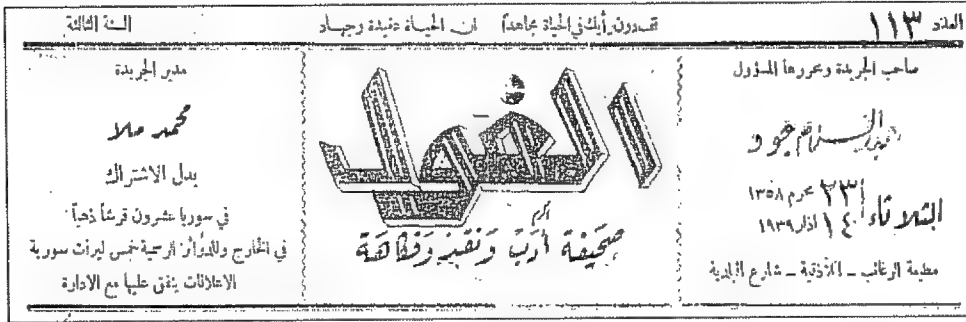 العدد ١١٣
قف دون رأيك في الحياة مجاهداً ان الحياة عقيدة وجهاد
السنة الثالثة
صاحب الجريدة ومحررها المسؤول
عبد السلام
الثلاثاء ٢٣ محرم ١٣٥٨
١٤ اذار ١٩٣٩
مطبعة الرغائب - اللاذقية - شارع البلدية
صحيفة أدب ونقد وفكاهة
مدير الجريدة
محمد ملا
بدل الاشتراك
في سوريا عشرون قرشاً ذهباً
في الخارج وللدوائر الرسمية خمس ليرات سورية
الاعلانات يتفق عليها مع الادارة